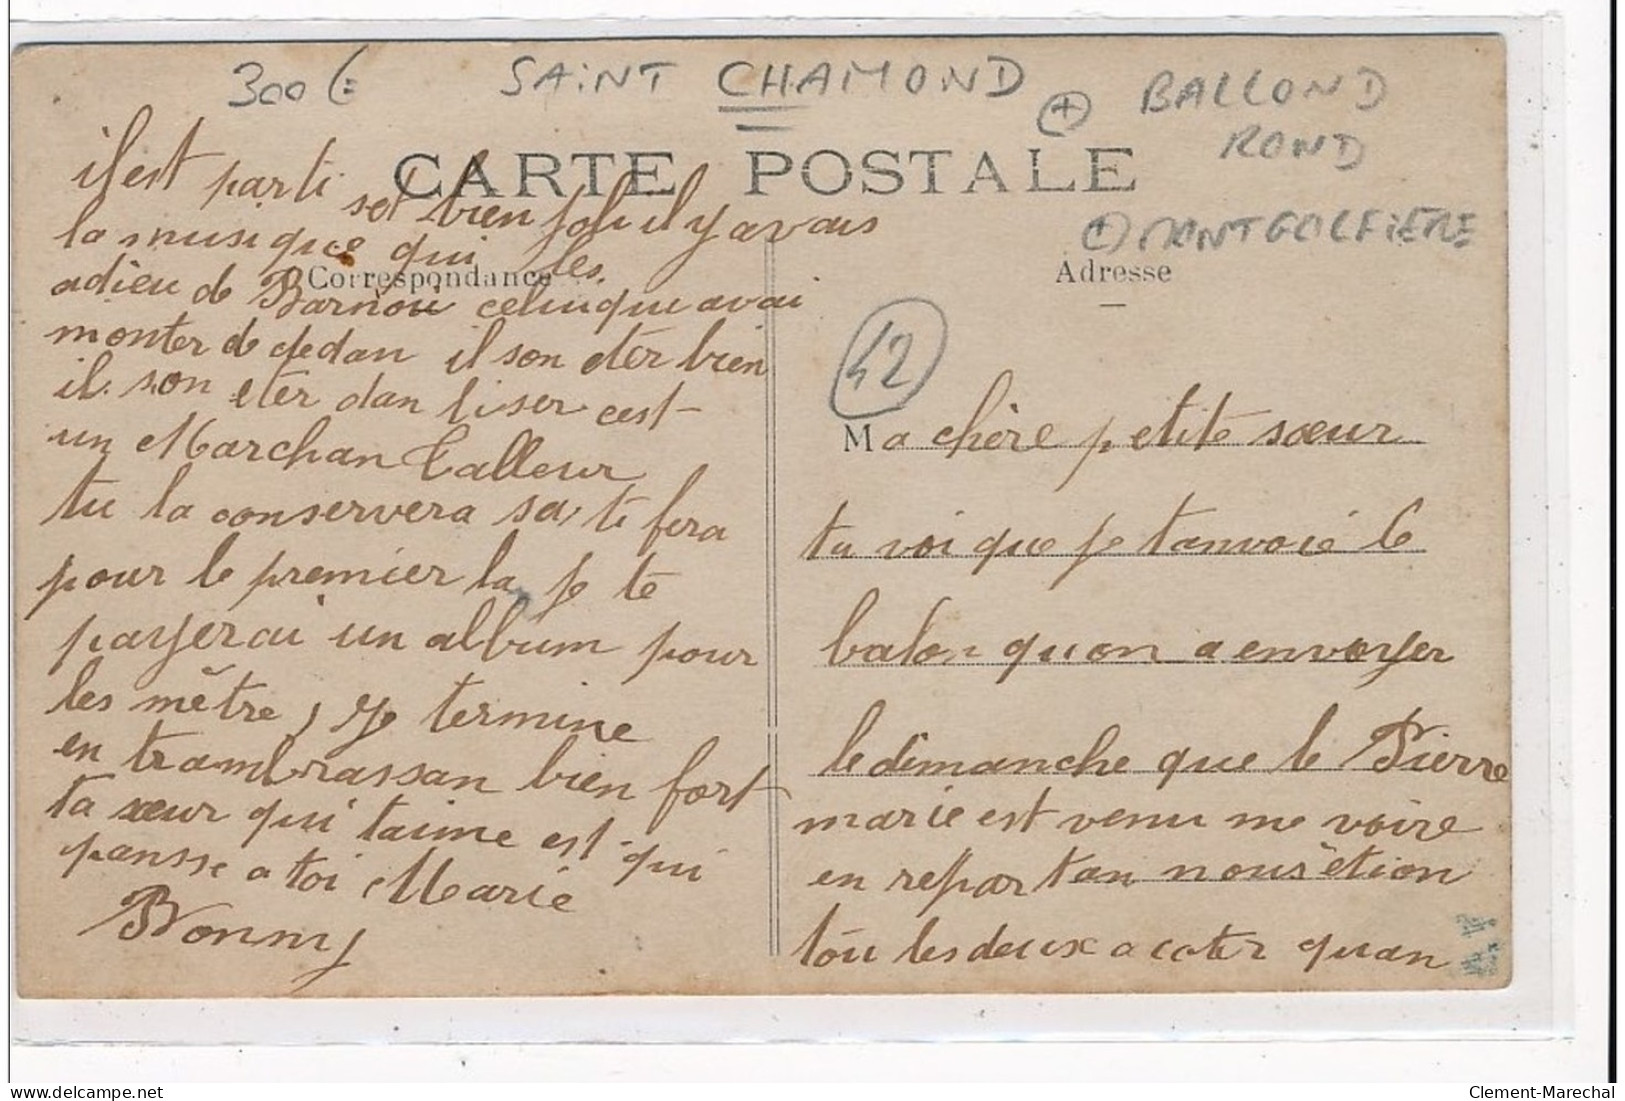 300 €
SAINT CHAMOND
+ BALLOND
ROND
+ MONTGOLFIERE
CARTE POSTALE
Correspondance
Adresse
42
Ma chère petite sœur
tu voi que je tanvoie le
balon quon a envoyer
le dimanche que le Pierre
marie est venu me voire
en repartan nous étion
tou les deux a coter quan
il est parti set bien joli il y avais
la musique qui les
adieu de Barnou celui que avai
monter de dedan il son eter bien
il son eter dan liser cest
un Marchan talleur
tu la conservera sa te fera
pour le premier la je te
payerai un album pour
les mêtre, je termine
en trambrassan bien fort
ta sœur qui taime est qui
pansse a toi Marie
Bonny
Clement-Marechal